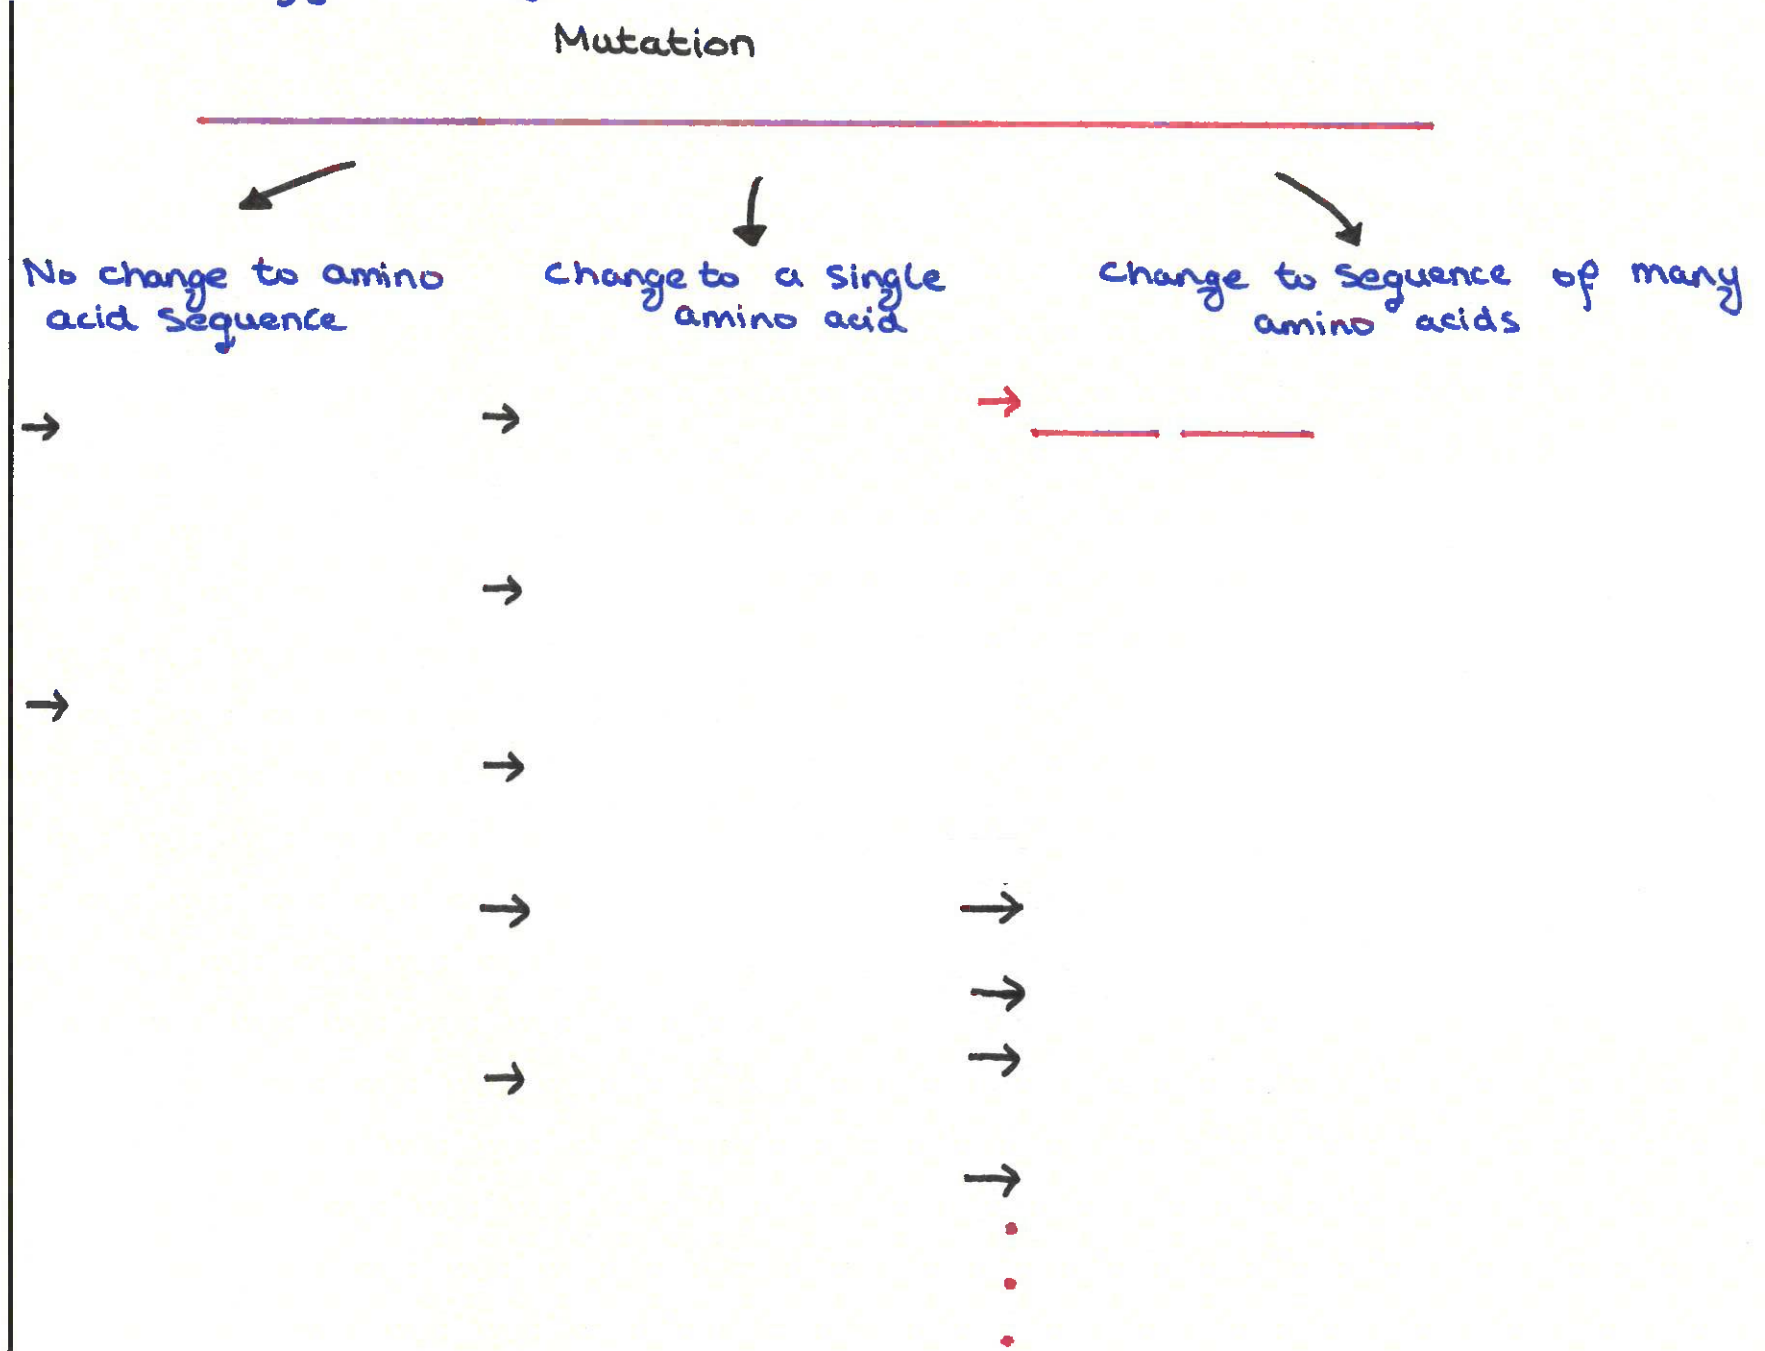 Mutation
No change to amino
acid sequence
change to a single
amino acid
change to sequence of many
amino acids